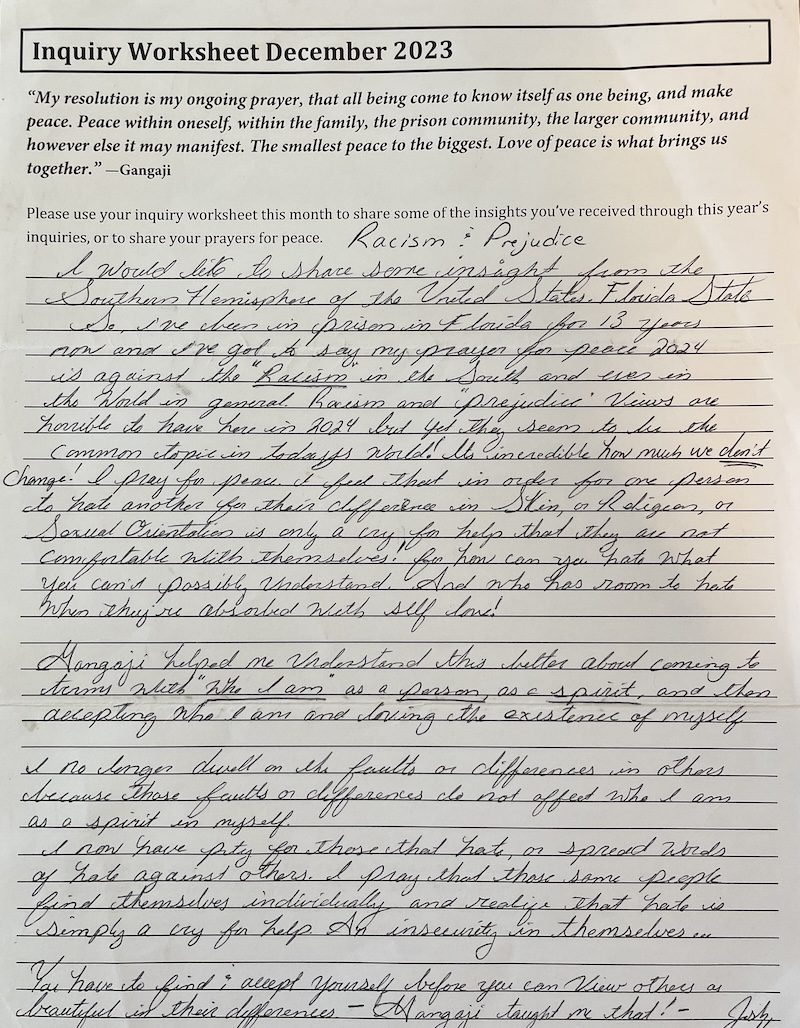 Inquiry Worksheet December 2023
“My resolution is my ongoing prayer, that all being come to know itself as one being, and make
peace. Peace within oneself, within the family, the prison community, the larger community, and
however else it may manifest. The smallest peace to the biggest. Love of peace is what brings us
together.” —Gangaji
Please use your inquiry worksheet this month to share some of the insights you’ve received through this year’s
inquiries, or to share your prayers for peace. Racism & Prejudice
I would like to share some insight from the
Southern Hemisphere of the United States. Florida State
So, i've been in prison in Florida for 13 years
now and i've got to say my prayer for peace 2024
is against the "Racism" in the South and even in
the World in general. Racism and "prejudice" Views are
horrible to have here in 2024 but yet they seem to be the
common topic in todays World! Its incredible how much we don't
Change! I pray for peace. I feel that in order for one person
to hate another for their difference in Skin, or Religion, or
Sexual Orientation is only a cry for help that they are not
comfortable with themselves! for how can you hate what
you can't possibly Understand. And who has room to hate
when they're absorbed with self love!
Gangaji helped me Understand this better about coming to
terms with "Who I am" as a person, as a spirit, and then
accepting who I am and loving the existence of myself
I no longer dwell on the faults or differences in others
because those faults or differences do not affect who I am
as a spirit in myself.
I now have pity for those that hate, or spread words
of hate against others. I pray that those same people
find themselves individually and realize that hate is
simply a cry for help An insecurity in themselves...
You have to find & accept yourself before you can View others as
beautiful in their differences — Gangaji taught me that! - Josh